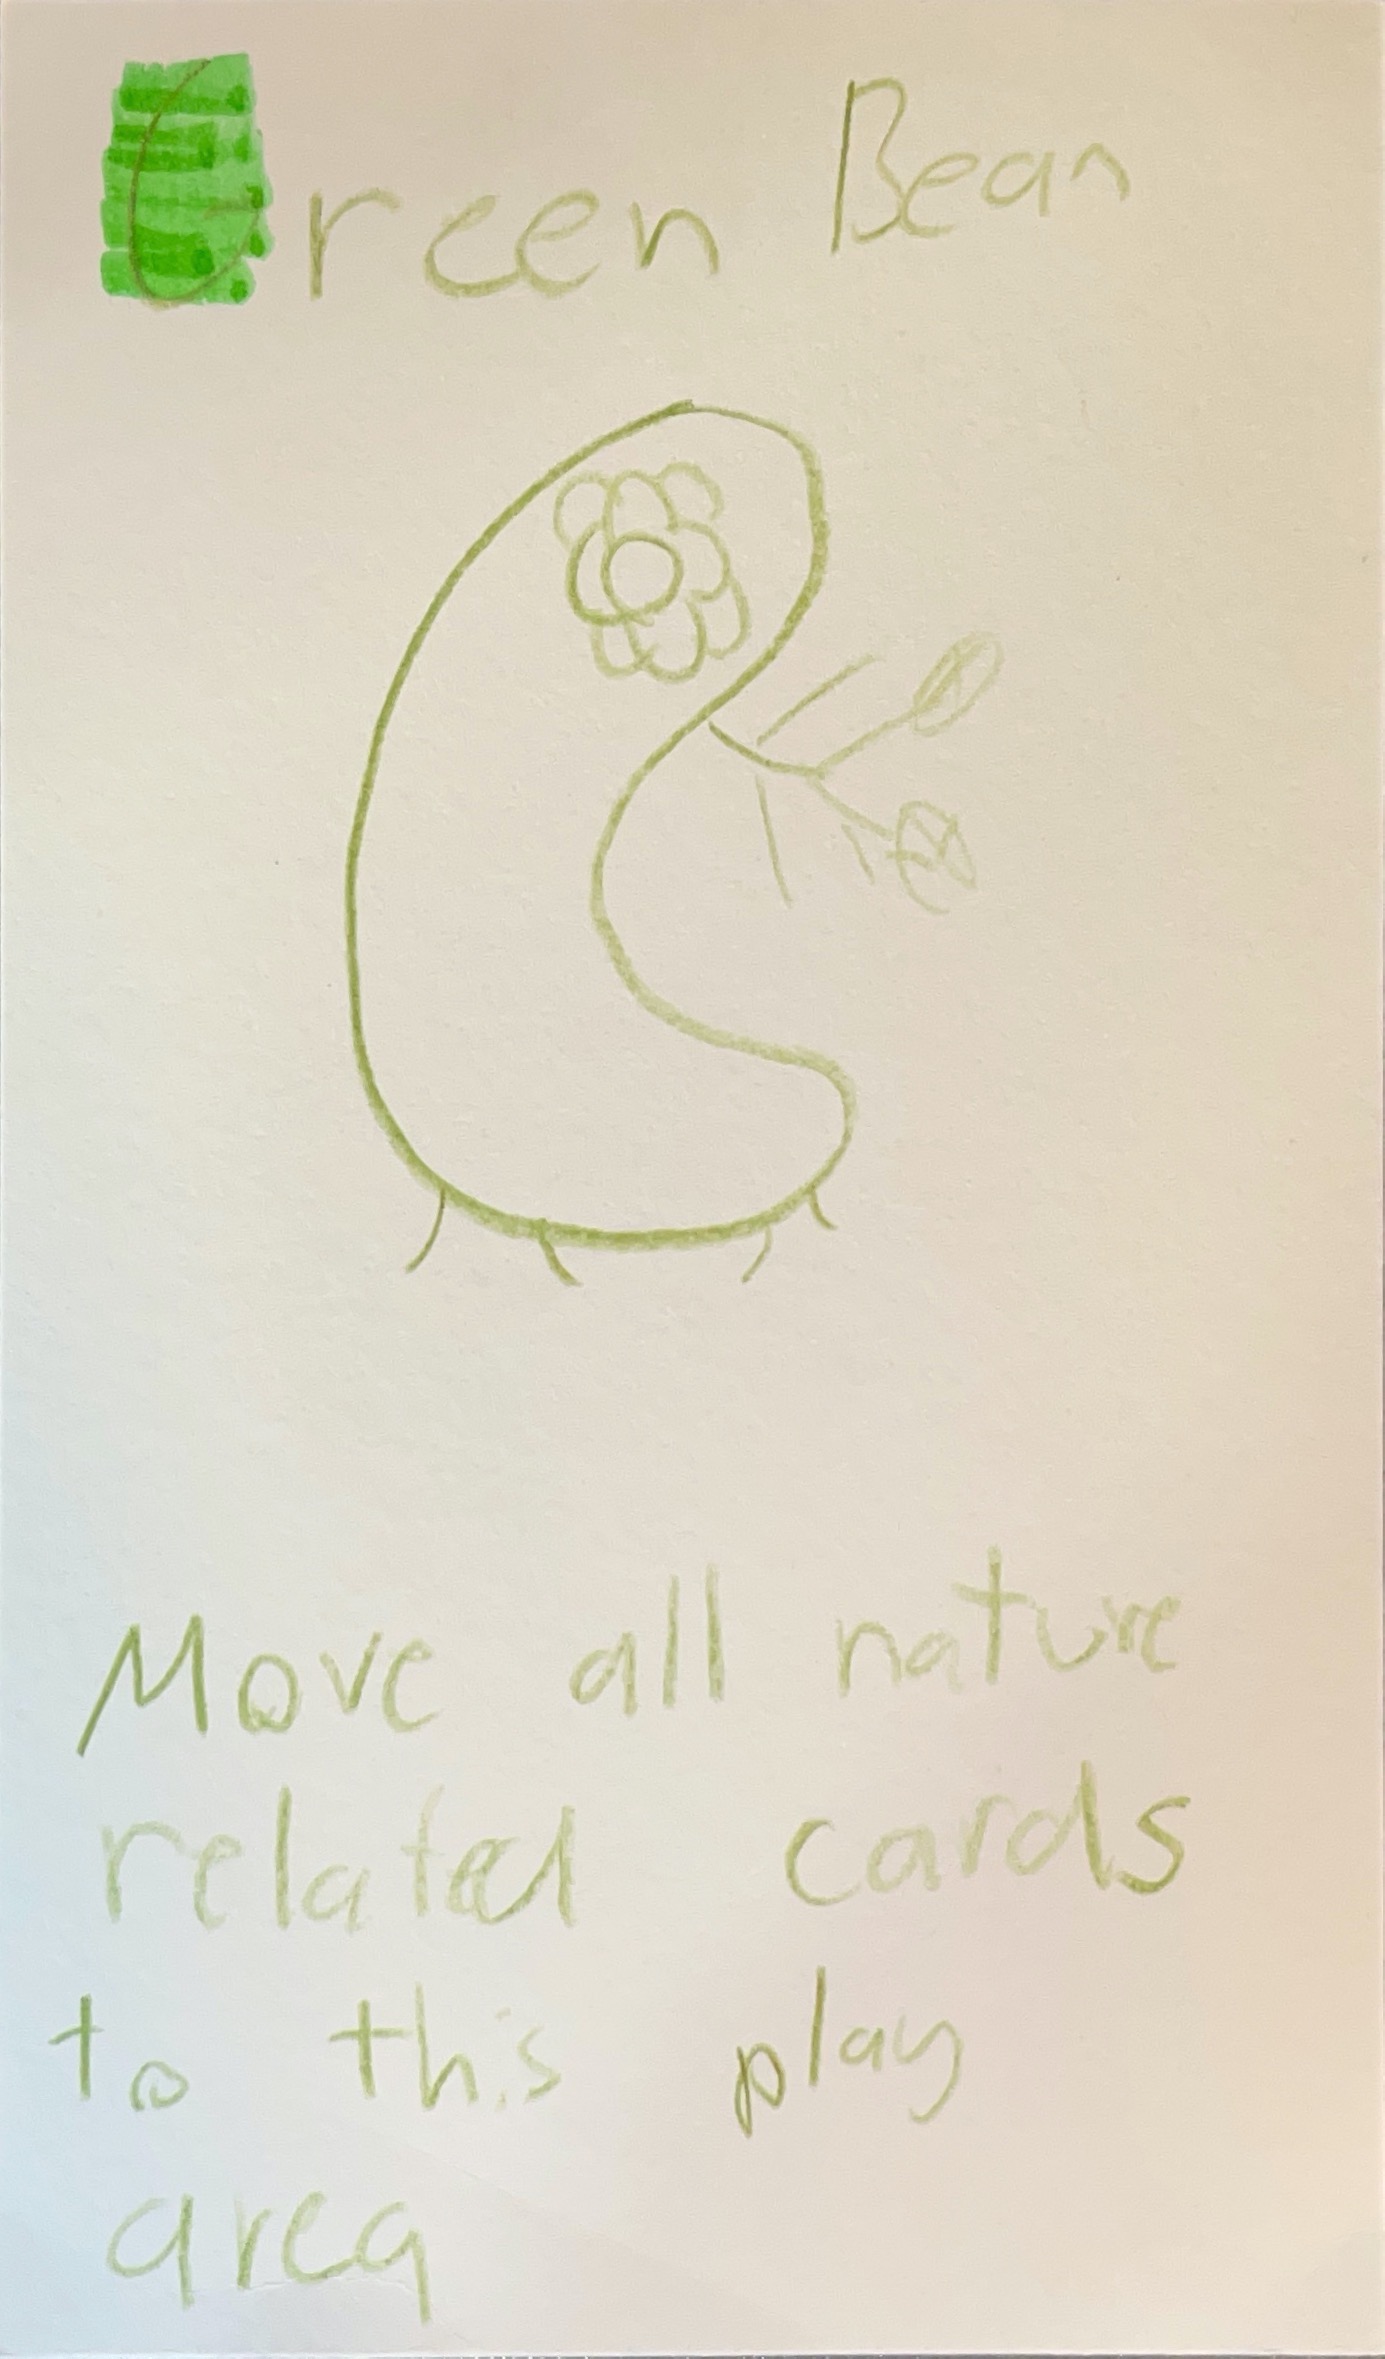 Green Bean
Move all nature
related cards
to this play
area